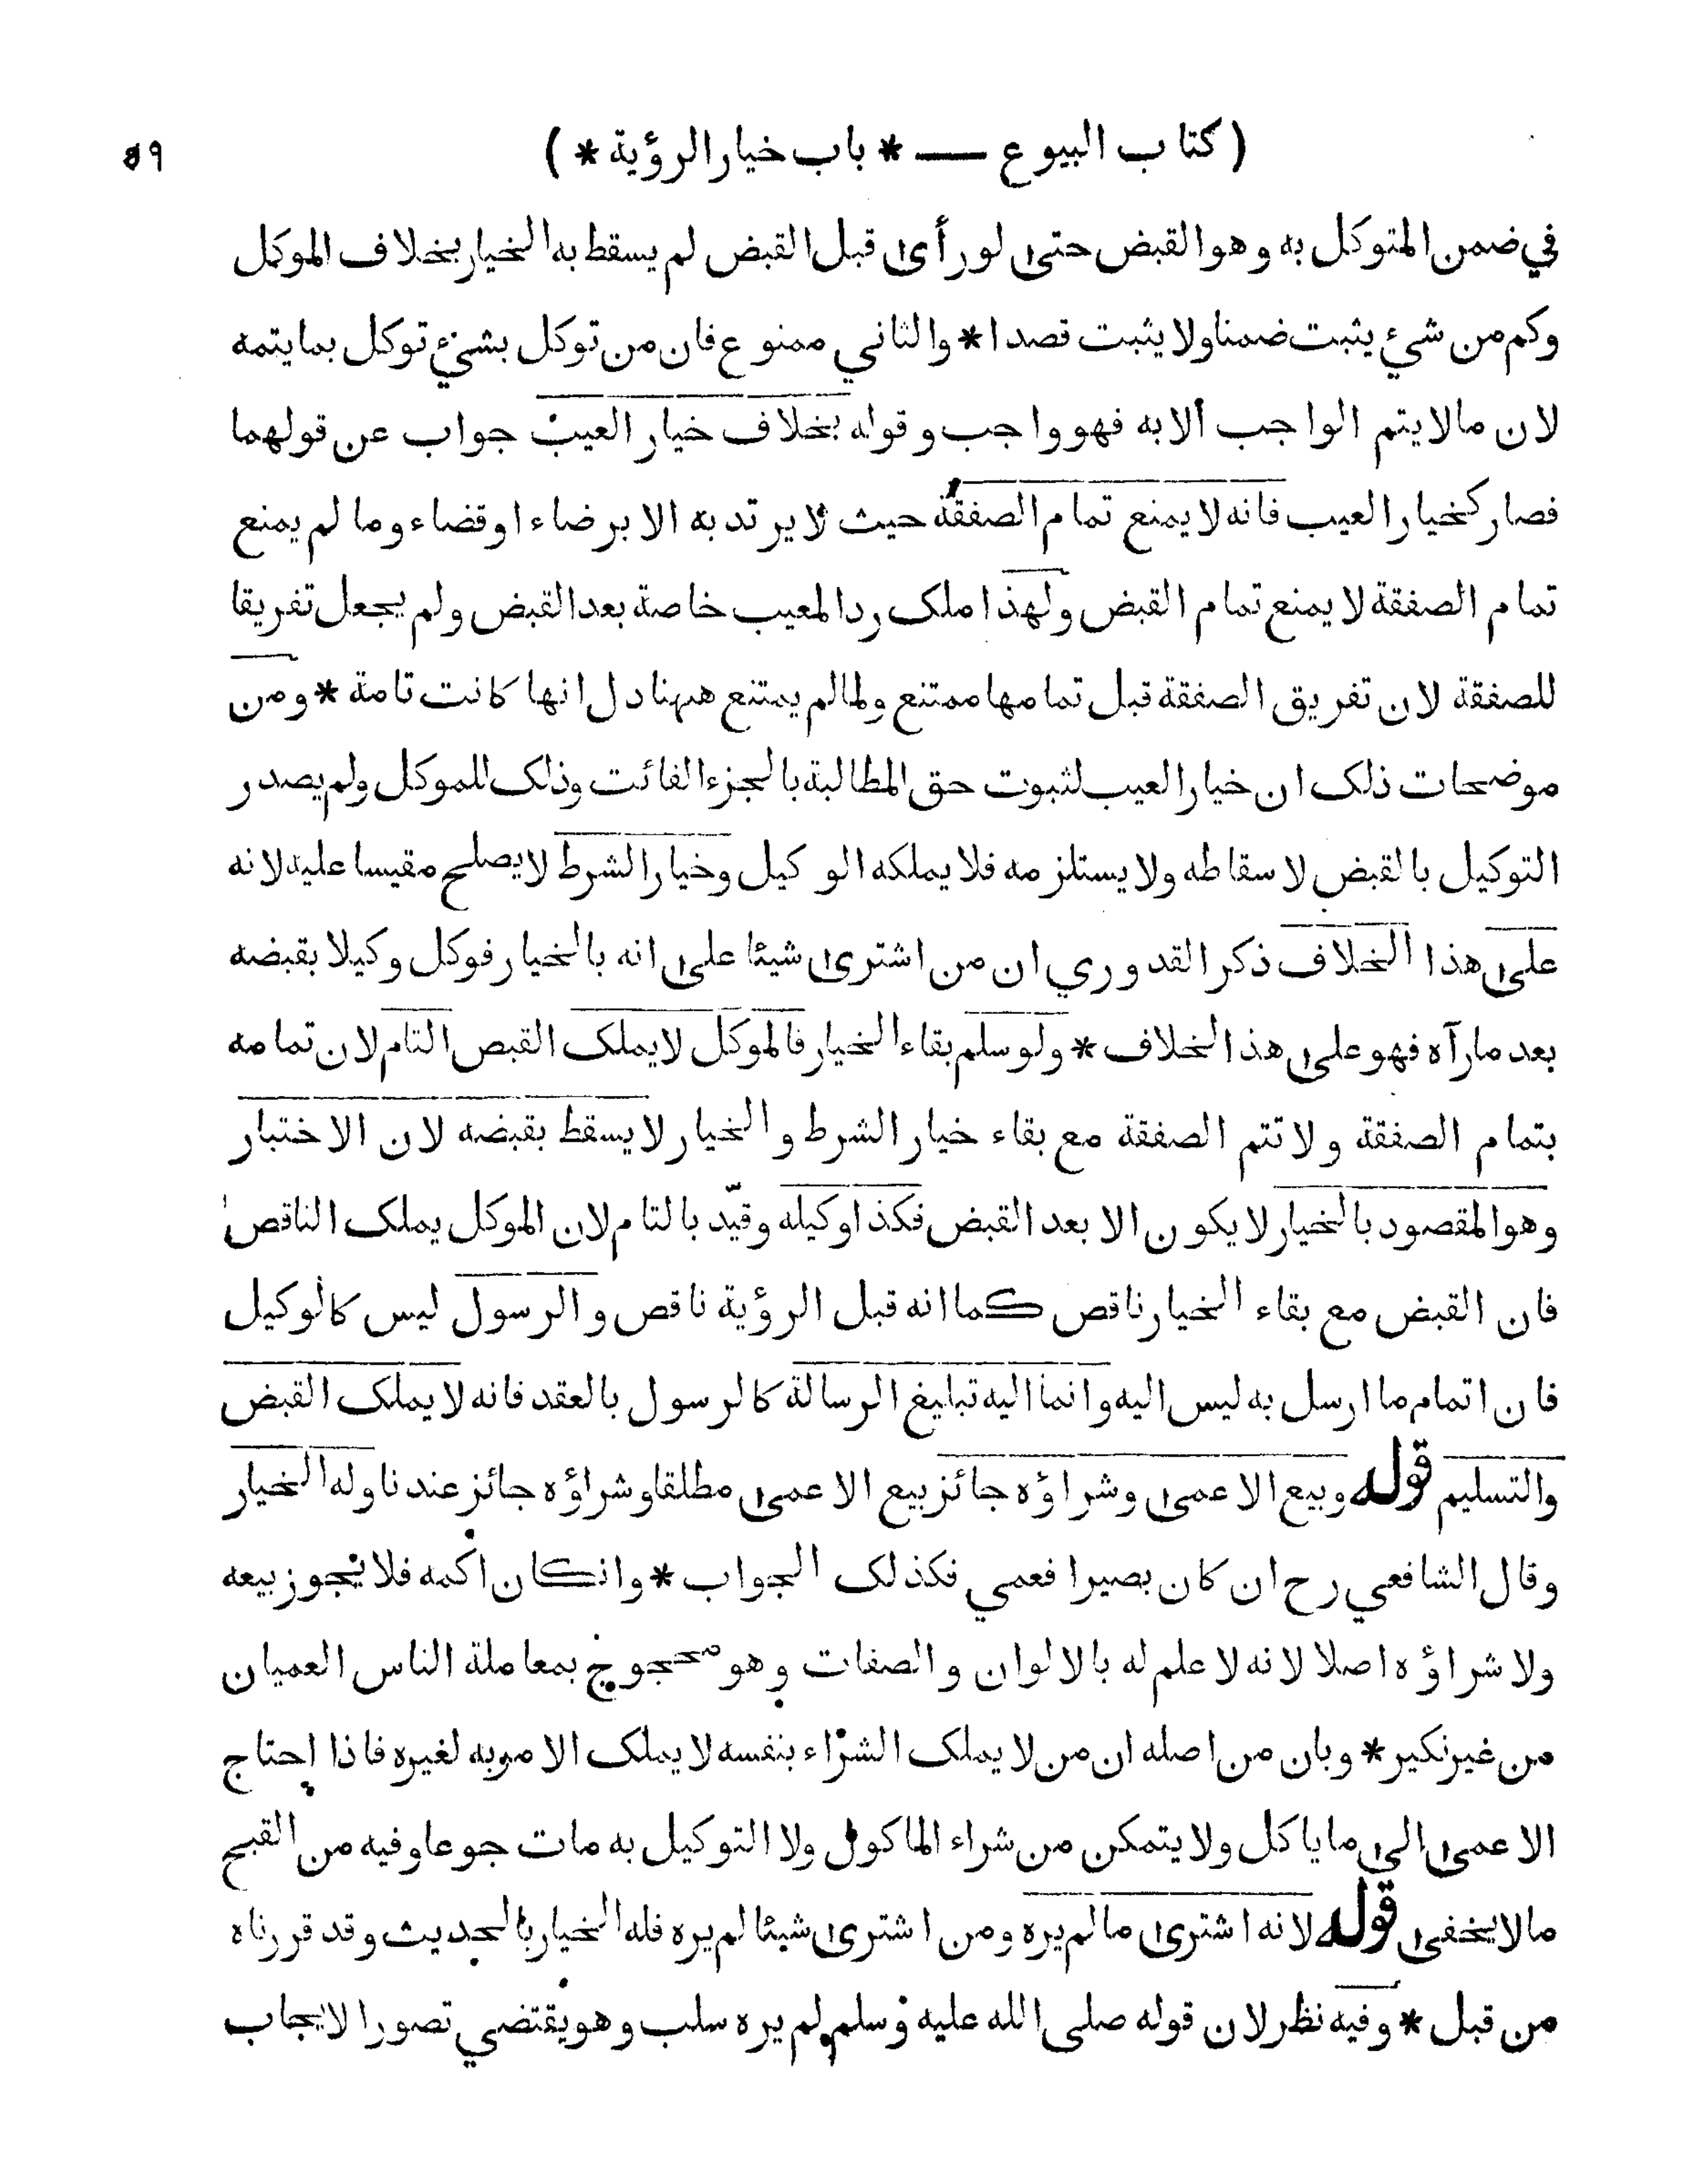 ( كتاب البيوع — * باب خيار الرؤية * )
٥٩
في ضمن المتوكل به وهو القبض حتى لو رأى قبل القبض لم يسقط به الخيار بخلاف الموكل
وكم من شيء يثبت ضمنا ولا يثبت قصدا * والثاني ممنوع فان من توكل بشيء توكل بما يتمه
لان مالا يتم الواجب ألا به فهو واجب وقوله بخلاف خيار العيب جواب عن قولهما
فصار كخيار العيب فانه لا يمنع تمام الصفقة حيث لا يرتد به الا برضاء او قضاء وما لم يمنع
تمام الصفقة لا يمنع تمام القبض ولهذا ملك رد المعيب خاصة بعد القبض ولم يجعل تفريقا
للصفقة لان تفريق الصفقة قبل تمامها ممتنع ولما لم يمتنع ههنا دل انها كانت تامة * ومن
موضحات ذلك ان خيار العيب لثبوت حق المطالبة بالجزء الفائت وذلك للموكل ولم يصدر
التوكيل بالقبض لاسقاطه ولا يستلزمه فلا يملكه الوكيل وخيار الشرط لا يصلح مقيسا عليه لانه
على هذا الخلاف ذكر القدوري ان من اشترى شيئا على انه بالخيار فوكل وكيلا بقبضه
بعد ما رآه فهو على هذا الخلاف * ولو سلم بقاء الخيار فالموكل لا يملك القبض التام لان تمامه
بتمام الصفقة ولا تتم الصفقة مع بقاء خيار الشرط والخيار لا يسقط بقبضه لان الاختبار
وهو المقصود بالخيار لا يكون الا بعد القبض فكذا وكيله وقيّد بالتام لان الموكل يملك الناقص
فان القبض مع بقاء الخيار ناقص كما انه قبل الرؤية ناقص والرسول ليس كالوكيل
فان اتمام ما ارسل به ليس اليه وانما اليه تبليغ الرسالة كالرسول بالعقد فانه لا يملك القبض
والتسليم قوله وبيع الاعمى وشراؤه جائز بيع الاعمى مطلقا وشراؤه جائز عندنا وله الخيار
وقال الشافعي رح ان كان بصيرا فعمي فكذلك الجواب * وانكان اكمه فلا يجوز بيعه
ولا شراؤه اصلا لانه لا علم له بالالوان والصفات وهو محجوج بمعاملة الناس العميان
من غير نكير * وبان من اصله ان من لا يملك الشراء بنفسه لا يملك الامر به لغيره فاذا احتاج
الاعمى الى ما ياكل ولا يتمكن من شراء الماكول ولا التوكيل به مات جوعا وفيه من القبح
مالا يخفى قوله لانه اشترى ما لم يره ومن اشترى شيئا لم يره فله الخيار بالحديث وقد قررناه
من قبل * وفيه نظر لان قوله صلى الله عليه وسلم لم يره سلب وهو يقتضي تصور الايجاب